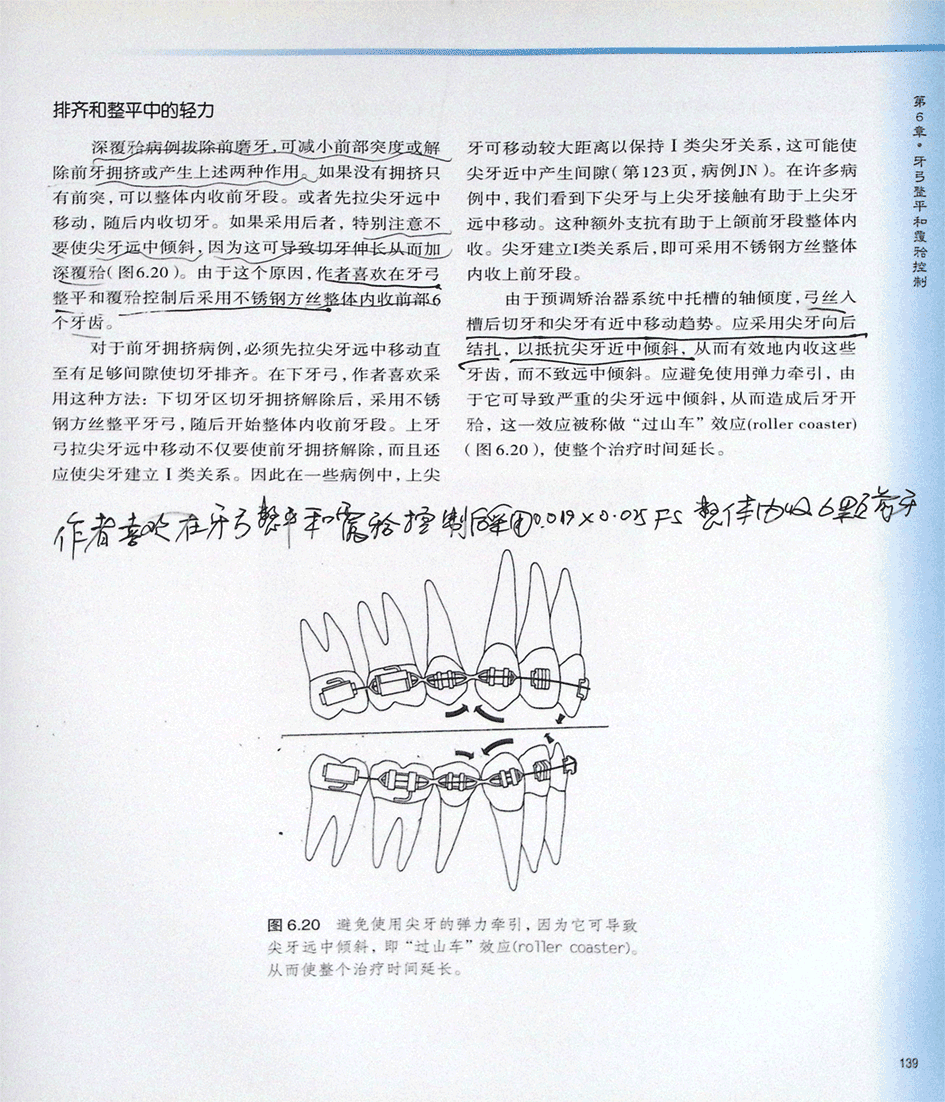 第6章·牙弓整平和覆𬌗控制
排齐和整平中的轻力
深覆𬌗病例拔除前磨牙,可减小前部突度或解
除前牙拥挤或产生上述两种作用。如果没有拥挤只
有前突,可以整体内收前牙段。或者先拉尖牙远中
移动,随后内收切牙。如果采用后者,特别注意不
要使尖牙远中倾斜,因为这可导致切牙伸长从而加
深覆𬌗(图6.20)。由于这个原因,作者喜欢在牙弓
整平和覆𬌗控制后采用不锈钢方丝整体内收前部6
个牙齿。
对于前牙拥挤病例,必须先拉尖牙远中移动直
至有足够间隙使切牙排齐。在下牙弓,作者喜欢采
用这种方法:下切牙区切牙拥挤解除后,采用不锈
钢方丝整平牙弓,随后开始整体内收前牙段。上牙
弓拉尖牙远中移动不仅要使前牙拥挤解除,而且还
应使尖牙建立Ⅰ类关系。因此在一些病例中,上尖
牙可移动较大距离以保持Ⅰ类尖牙关系,这可能使
尖牙近中产生间隙(第123页,病例JN)。在许多病
例中,我们看到下尖牙与上尖牙接触有助于上尖牙
远中移动。这种额外支抗有助于上颌前牙段整体内
收。尖牙建立Ⅰ类关系后,即可采用不锈钢方丝整体
内收上前牙段。
由于预调矫治器系统中托槽的轴倾度,弓丝入
槽后切牙和尖牙有近中移动趋势。应采用尖牙向后
结扎,以抵抗尖牙近中倾斜,从而有效地内收这些
牙齿,而不致远中倾斜。应避免使用弹力牵引,由
于它可导致严重的尖牙远中倾斜,从而造成后牙开
𬌗,这一效应被称做“过山车”效应(roller coaster)
(图6.20),使整个治疗时间延长。
作者喜欢在牙弓整平和覆𬌗控制后采用0.019×0.025 FS 整体内收6颗前牙
图6.20 避免使用尖牙的弹力牵引,因为它可导致
尖牙远中倾斜,即“过山车”效应(roller coaster)。
从而使整个治疗时间延长。
139